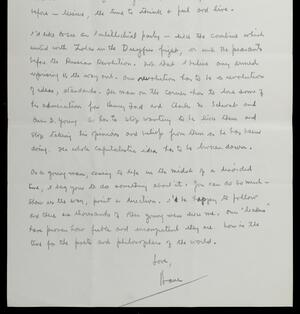 before - leisure, the time to think & feel and live.
I'd like to see an Intellectual party - like the Combine which
united with Zola in the Dreyfus fight, or with the peasants
before the Russian Revolution. Not that I believe any armed
uprising is the way out. Our revolution has to be a revolution
of ideas, standards. The man on the corner has to lose some of
his admiration for Henry Ford and Charles M. Schwab and
Owen D. Young. He has to stop wanting to be like them and
stop taking his opinions and beliefs from them as he has been
doing. The whole Capitalistic idea has to be broken down.
As a young man, coming to life in the midst of a
time, I beg you to do something about it. You can do much -
show us the way, point a direction. I'd be happy to follow
and there are thousands of other young men like me. Our "leaders"
have proven how futile and incompetent they are. Now is the
time for the poets and philosophers of the world.
Love,